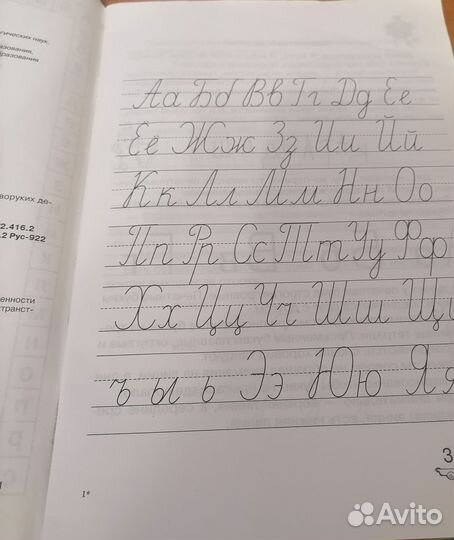 гических наук,
азования,
бразования
воруких де-
2.416.2
.2 Рус-922
енности
транст-
Аа Бб Вв Гг Дд Ее
Её Жж Зз Ии Йй
Кк Лл Мм Нн Оо
Пп Рр Сс Тт Уу Фф
Хх Цц Чч Шш Щ
ъ ы ь Ээ Юю Яя
3
1*
Avito